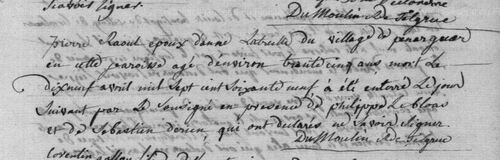 Du Moulin Rde
pierre Raoul epoux danne Labreille du village de penarguear
en cette paroisse agé denviron trente cinq ans mort Le
dixneuf avril mil Sept cent Soixante neuf a été enterré Le jour
Suivant par Le Sousigné en presence de philippe Le bloas
et de Sebastien derien, qui ont declarés ne Savoir Signer
Du Moulin Rde
Corentin